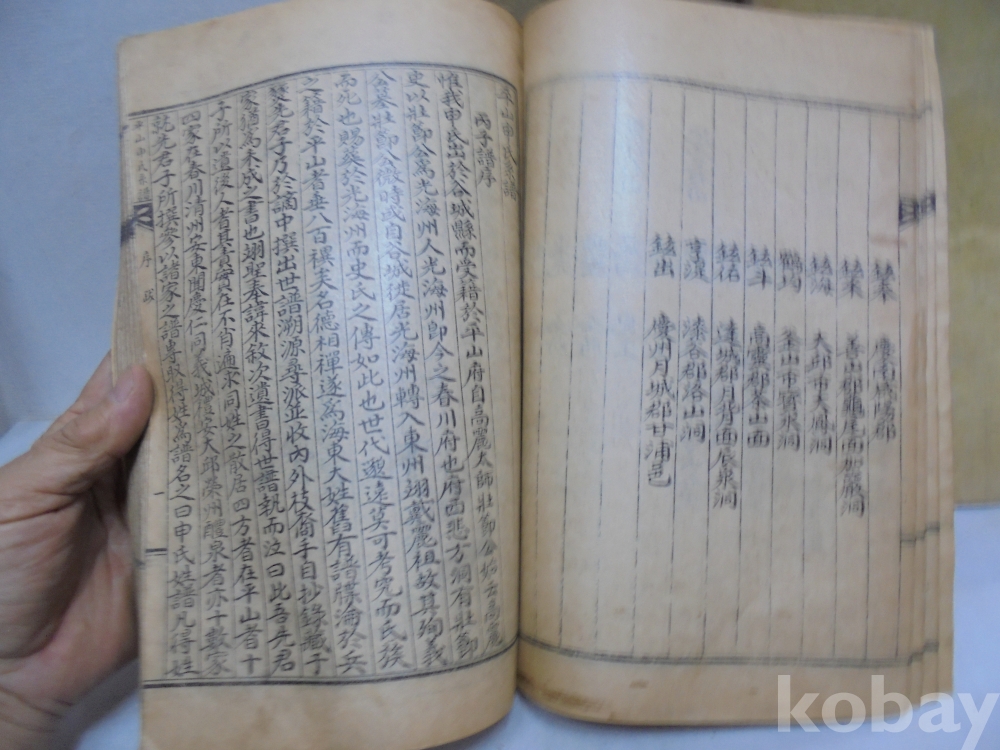 鉉奉 慶南咸陽郡
鉉業 善山郡龜尾面如嚴洞
鉉海 大邱市大鳳洞
鶴均 釜山市寶水洞
鉉斗 高靈郡茶山面
鉉佑 達城郡月背面辰泉洞
亨漢 漆谷郡洛山洞
鉉出 慶州月城郡甘浦邑
平山申氏系譜
丙子譜序
惟我申氏出於谷城縣而受籍於平山府自高麗太師壯節公始云高麗
史以壯節公爲光海州人光海州卽今之春川府也府西悲方洞有壯節
公墓壯節公微時或自谷城徙居光海州轉入東州翊戴麗祖故其殉義
而死也賜葬於光海州而史氏之傳如此也世代邈遠莫可考究而氏族
之籍於平山者垂八百禩矣名德相禪遂爲海東大姓舊有譜牒淪於兵
燹先君子乃於謫中撰出世譜溯源尋派並收內外枝裔手自抄錄藏于
家猶爲未成之書也翊聖奉諱來敍次遺書得世譜執而泣曰此吾先君
子所以遺後人者其責實在不肖遍求同姓之散居四方者在平山者十
四家在春川淸州安東聞慶仁同義城密安大邱榮州醴泉者亦十數家
就先君子所撰參以諸家之譜專取得姓爲譜名之曰申氏姓譜凡得姓
平山申氏譜 序 一
kobay